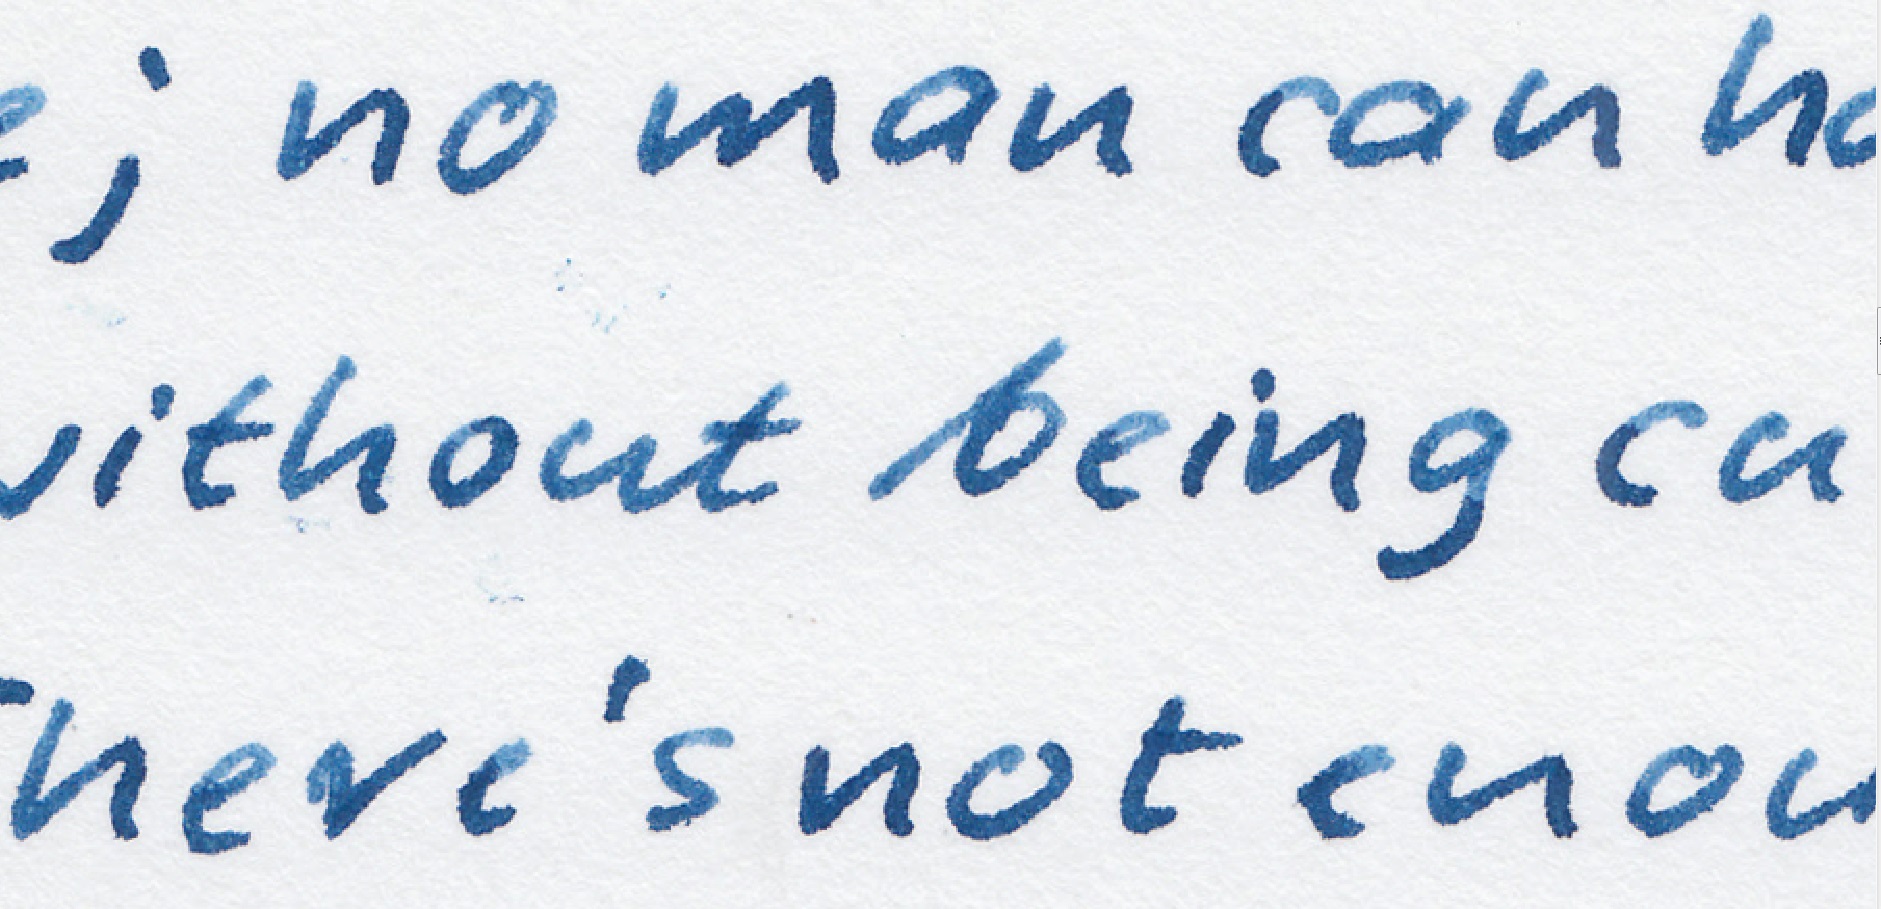 e; no man can ha
without being ca
There's not enou